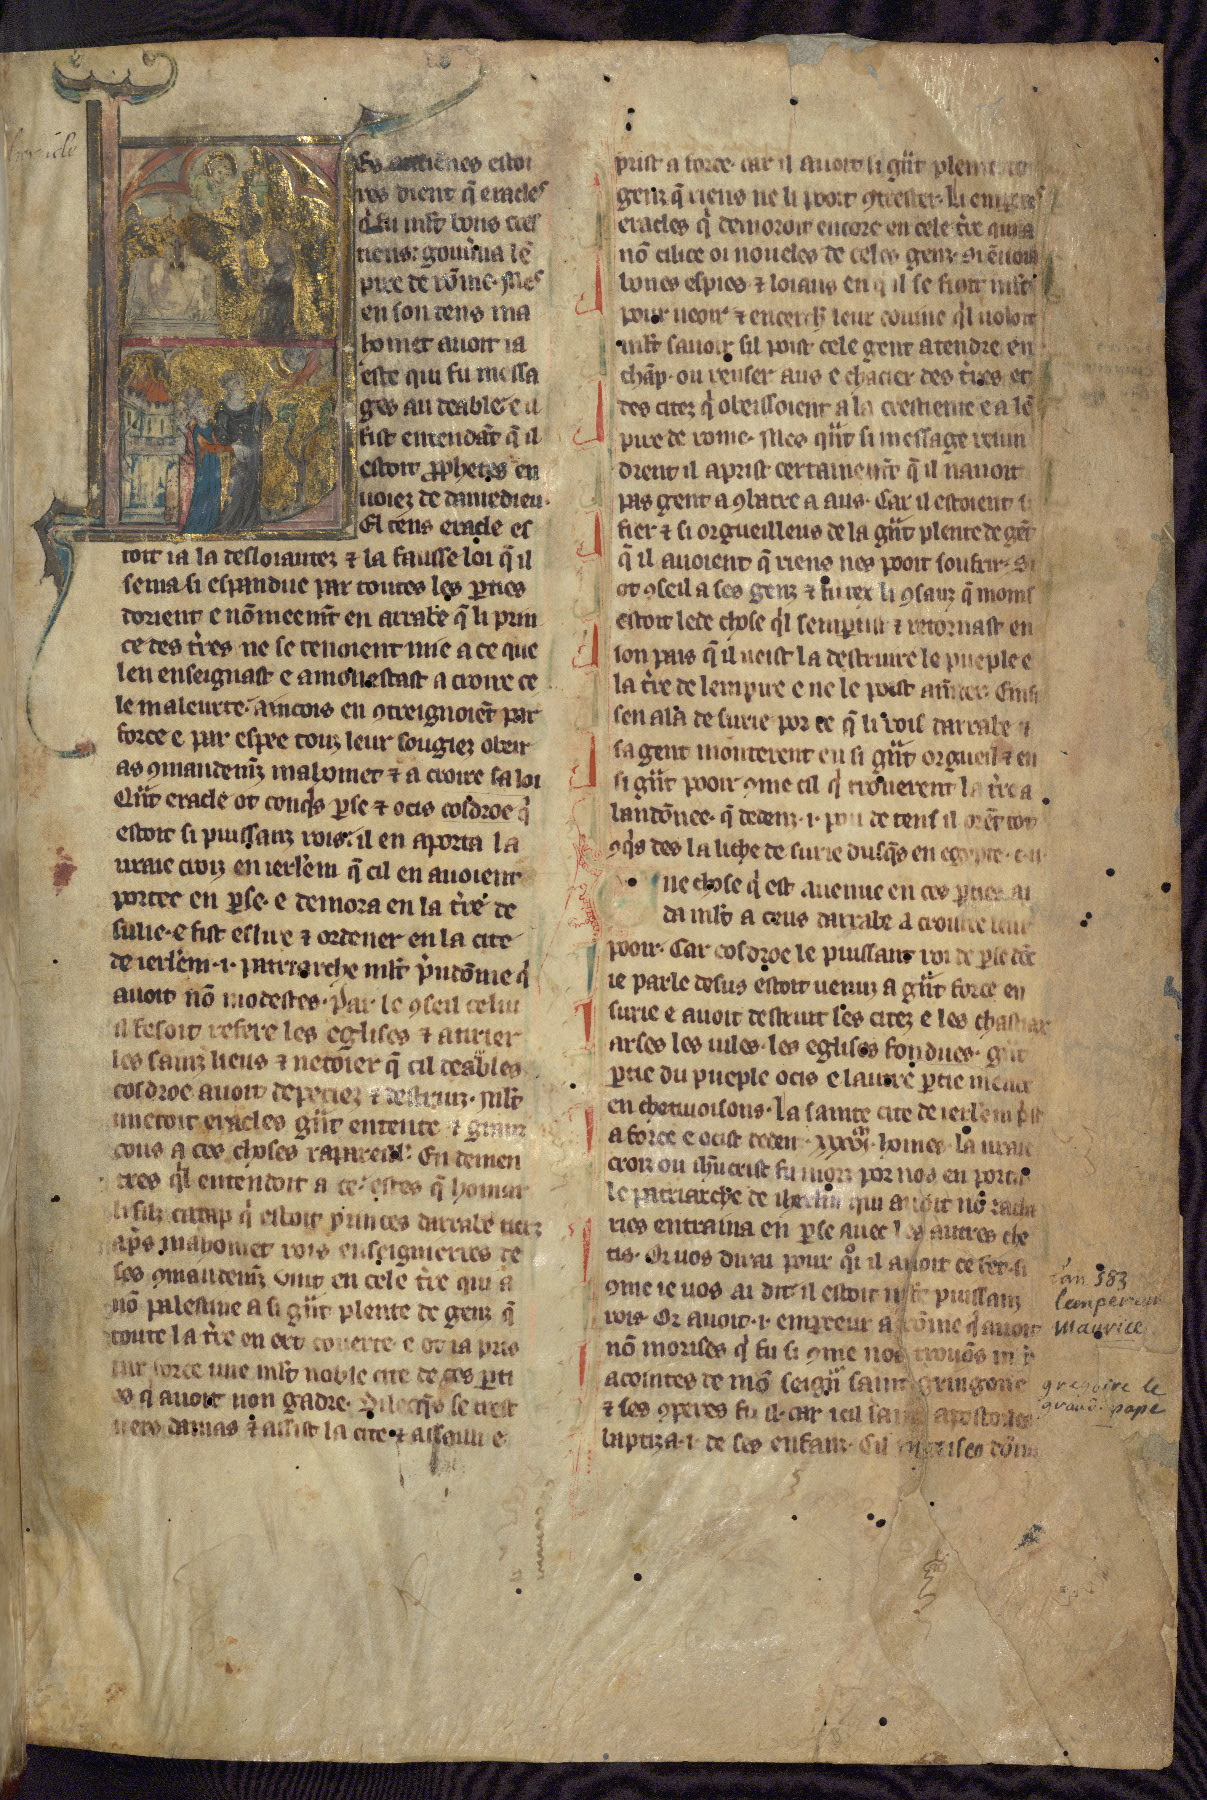 Es anciẽnes estoi
res dient q̃ eracles
q̓ fu ml̃t bons cres
tiens: gouũna lẽ
pire de rõme. Mes
en son tens ma
homet auoit ia
este qui fu messa
ges au deable e il
fist entendãt q̃ il
estoit ꝓphetes en
uoiez de damedieu.
El tens eracle es
toit ia la desloiautez ⁊ la fausse loi q̃ il
sema si espandue par toutes les ꝑties
dorient e nõmeem̃t en arrabe q̃ li prin
ce des tr̃es ne se tenoient mie a ce que
len enseignast e amonestast a croire ce
le maleurte. aincois en ꝯtreignoiẽt par
force e par espee touz leur sougiez obeir
as ꝯmandem̃z mahomet ⁊ a croire sa loi
Qũt eracle ot conq̓s ꝑse ⁊ ocis cosdroe q̓
estoit si puissanz rois: il en aporta la
uraie croiz en ierl̃em q̃ cil en auoient
portee en ꝑse. e demora en la tr̃e de
sulie. e fist eslire ⁊ ordener en la cite
de ierl̃em .i. patriarche ml̃t p̃udõme q̓
auoit nõ modestes. Par le ꝯseil celui
il fesoit refere les eglises ⁊ atirier
les sainz lieus ⁊ netoier q̃ cil deables
cosdroe auoit depeciez ⁊ destruiz. Ml̃t
metoit eracles gũt entente ⁊ granz
cous a ces choses rapareill̃. En demen
tres q̓l entendoit a ce. estes q̃ homar
li filz catap q̓ estoit princes darrabe tierz
ap̃s mahomet rois enseignierres de
ses ꝯmandem̃z uint en cele tr̃e qui a
nõ palestine a si gũt plente de genz q̃
toute la tr̃e en ert couerte. e ot ia pris
par force une ml̃t noble cite de ces ꝑti
es q̓ auoit non gadre. Dilecq̓s se trest
uers damas ⁊ assist la cite ⁊ assailli e
prist a force. car il auoit si gũt plente de
genz q̃ riens ne li pooit ꝯtrester. Li emꝑeres
eracles q̓ demoroit encore en cele tr̃e qui a
nõ cilice oi noueles de celes genz. Si ẽuoia
bones espies ⁊ loiaus en q̓ il se fioit ml̃t
pour ueoir ⁊ encerch̃ leur couine q̓l uoloit
ml̃t sauoir sil poist cele gent atendre en
chãp. ou reuser aus e chacier des tr̃es et
des citez q̓ obeissoient a la crestiente e a lẽ
pire de rome. Mes qũt si message reuin
drent il aprist certainem̃t q̃ il nauoit
pas gent a ꝯbatre a aus. Car il estoient si
fier ⁊ si orgueilleus de la gũt plente de gẽt
q̃ il auoient q̃ riens nes pooit soufrir. Si
ot ꝯseil a ses genz ⁊ fu tex li ꝯsauz q̃ moins
estoit lede chose q̓l semꝑtist ⁊ retornast en
son pais q̃ il ueist la destruire le pueple e
la tr̃e de lempire e ne le poist am̃der. Einsi
sen ala de surie por ce q̃ li rois darrabe ⁊
sa gent monterent en si gũt orgueil ⁊ en
si gũt pooir ꝯme cil q̓ trouerent la tr̃e a
bandõnee. q̃ dedenz .i. pou de tens il orẽt tot
ꝯq̓s des la liche de surie dusq̓s en egypte. e u
ne chose q̓ est auenue en ces ꝑties ai
da ml̃t a ceus darrabe a croistre leur
pooir. Car cosdroe le puissant roi de ꝑse dõt
ie parle desus estoit uenuz a gũt force en
surie e auoit destruit les citez e les chastiax
arses les uiles. les eglises fondues. gũt
ꝑtie du pueple ocis e lautre ꝑtie menee
en chetiuoisons. La sainte cite de ierl̃em p̃st
a force e ocist dedenz .xxxvi.ᵐ homes. la uraie
croiz ou ih̃ucrist fu morz por nos en porta.
le patriarche de ih̃erlm̃ qui auoit nõ zacha
ries entraina en ꝑse auec les autres che
tis. Or uos dirai pour qoi il auoit ce fet. si
ꝯme ie uos ai dit il estoit ml̃t puissanz
rois. Or auoit .i. empereur a rõme q̓ auoit
nõ morises q̓ fu si ꝯme nos trouõs ml̃t
acointes de mõ seignr̃ saint gringoire
⁊ ses ꝯperes fu il. car icil sainz apostoiles
baptiza .i. de ses enfanz. Cil morises dõna
l'an 583
l'empereur
maurice
gregoire le
grand. pape